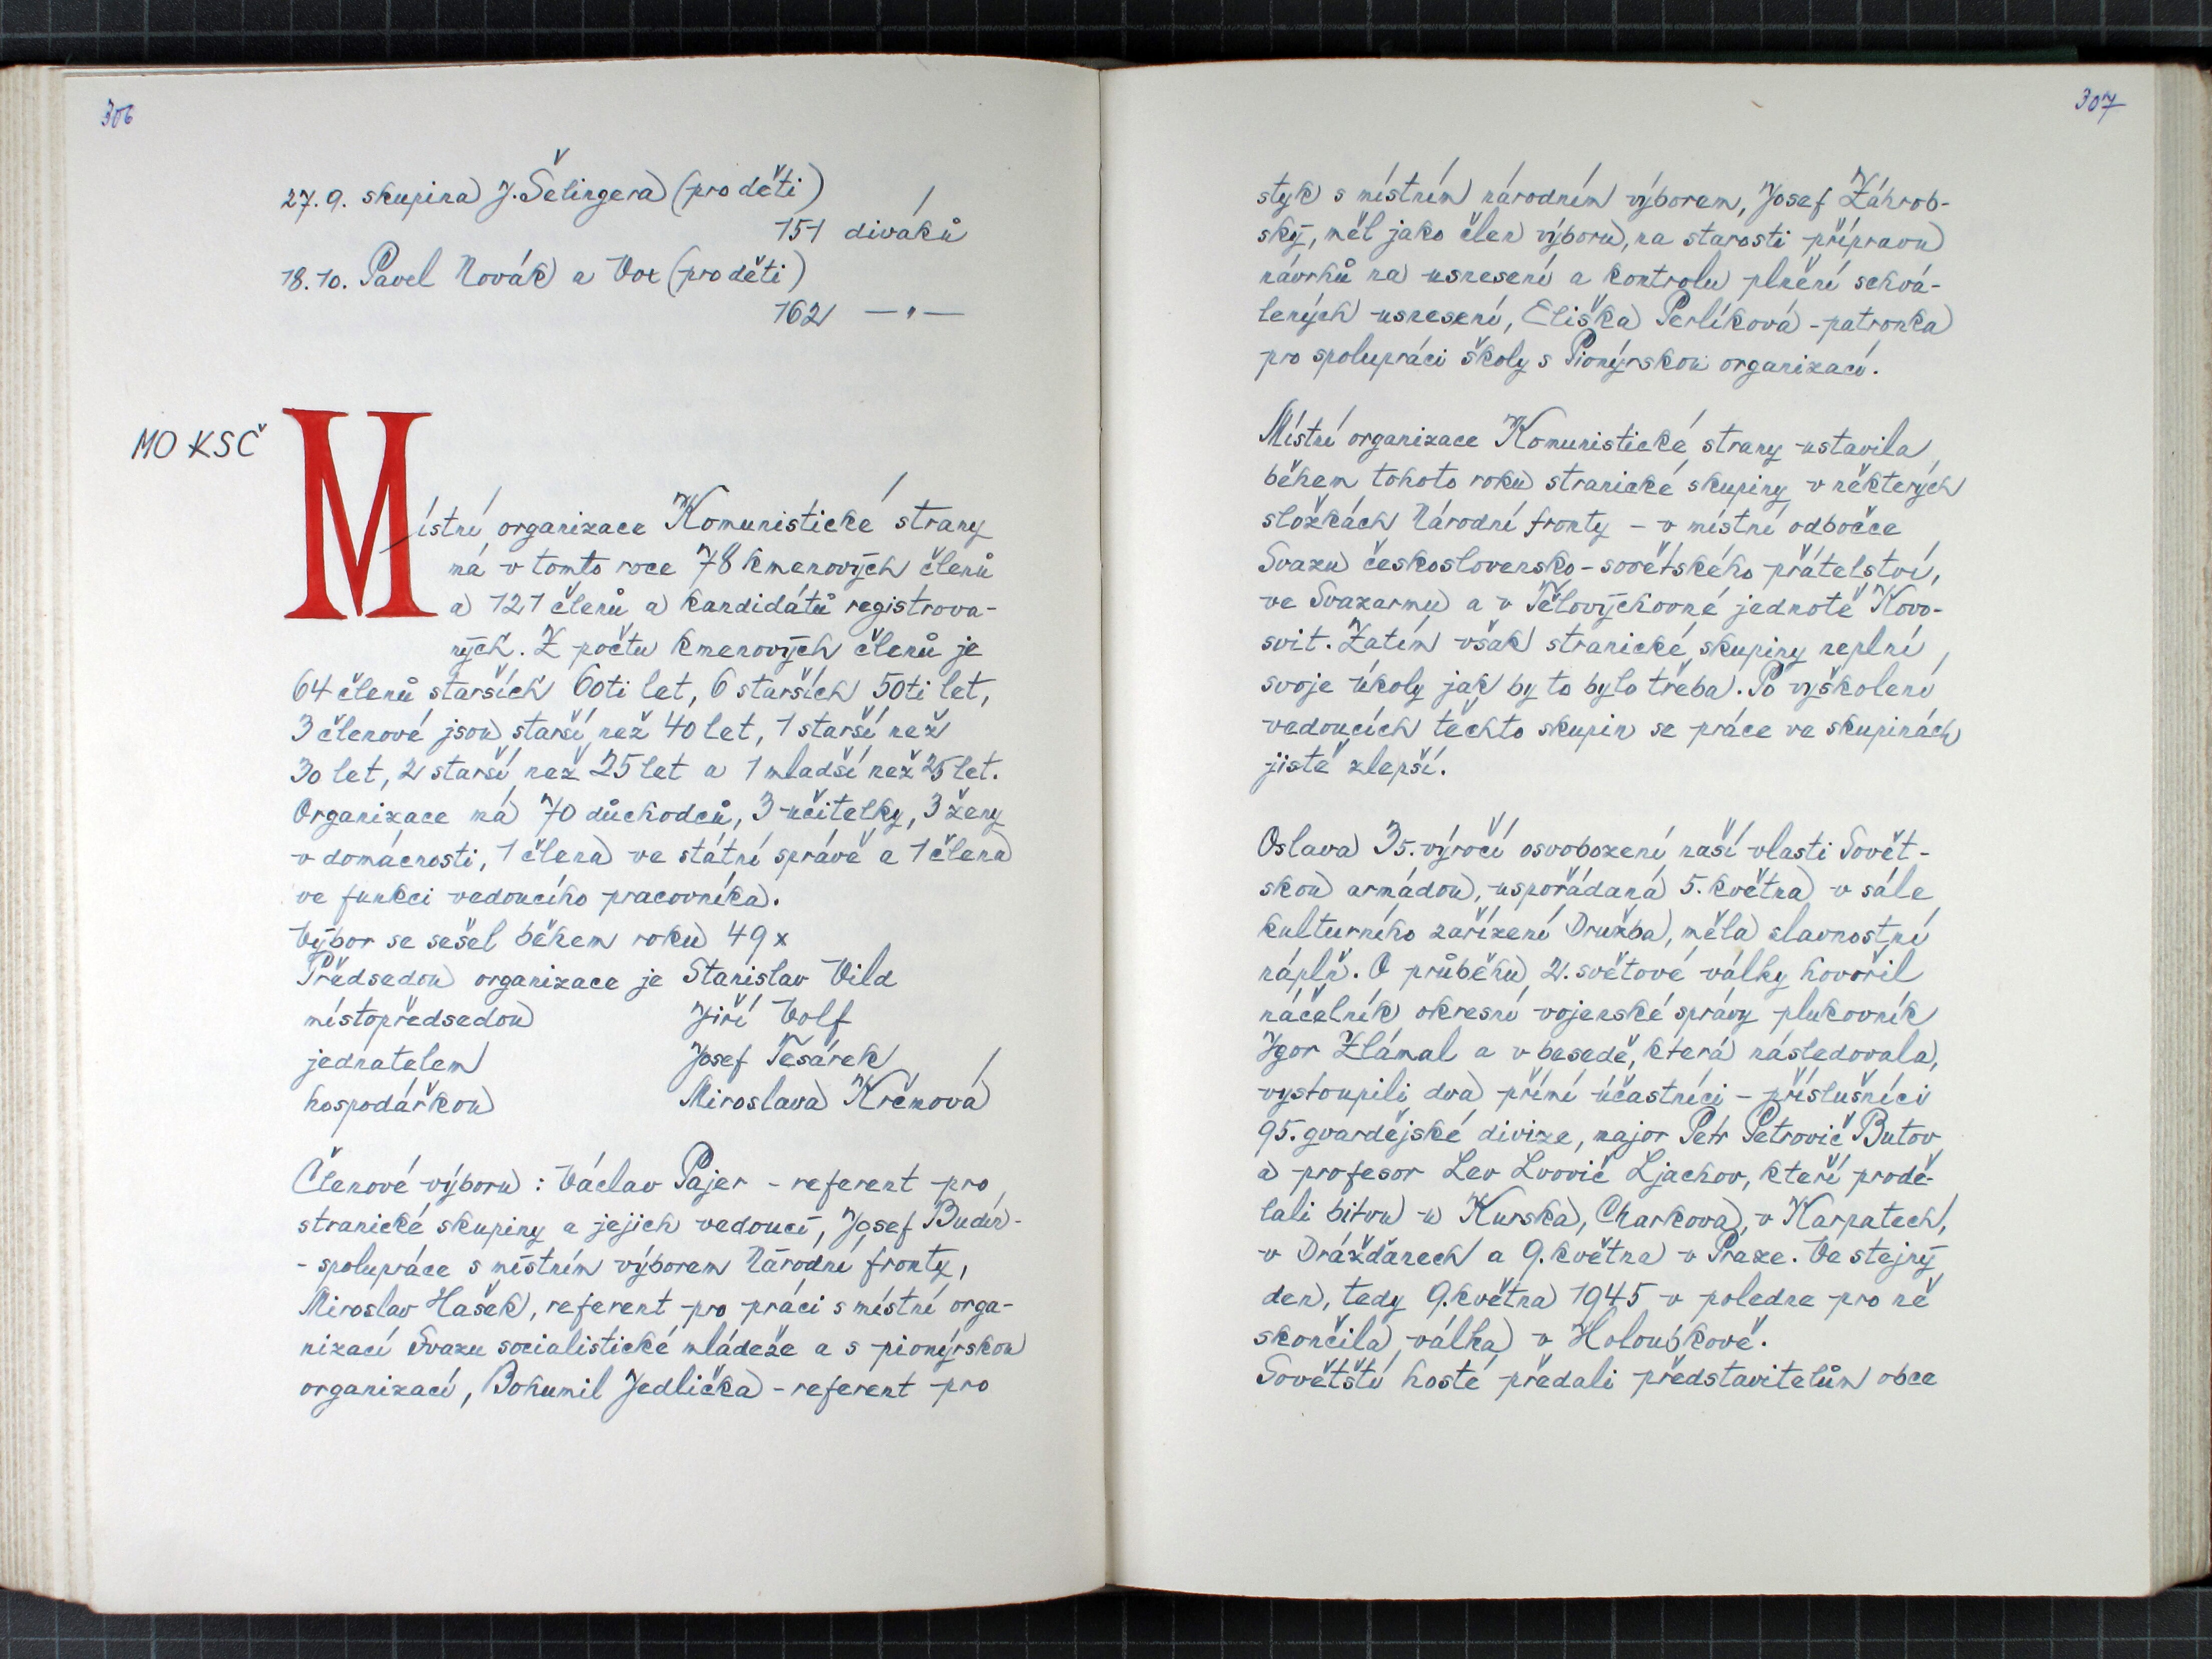 306
27.9. skupina J. Šelingera (pro děti)
151 diváků
18.10. Pavel Novák a Vox (pro děti)
162 — " —
MO KSČ
Místní organizace Komunistické strany
má v tomto roce 78 kmenových členů
a 121 členů a kandidátů registrova-
ných. Z počtu kmenových členů je
64 členů starších 60ti let, 6 starších 50ti let,
3 členové jsou starší než 40 let, 1 starší než
30 let, 2 starší než 25 let a 1 mladší než 25 let.
Organizace má 70 důchodců, 3 učitelky, 3 ženy
v domácnosti, 1 člena ve státní správě a 1 člena
ve funkci vedoucího pracovníka.
Výbor se sešel během roku 49 x
Předsedou organizace je Stanislav Vild
místopředsedou Jiří Volf
jednatelem Josef Tesárek
hospodářkou Miroslava Krčmová
Členové výboru : Václav Pajer - referent pro
stranické skupiny a jejich vedoucí, Josef Budín -
- spolupráce s místním výborem Národní fronty,
Miroslav Hašek, referent pro práci s místní orga-
nizací Svazu socialistické mládeže a s pionýrskou
organizací, Bohumil Jedlička - referent pro
307
styk s místním národním výborem, Josef Záhrob-
ský, měl jako člen výboru, na starosti přípravu
návrhů na usnesení a kontrolu plnění schvá-
lených usnesení, Eliška Perlíková - patronka
pro spolupráci školy s Pionýrskou organizací.
Místní organizace Komunistické strany ustavila
během tohoto roku stranické skupiny v některých
složkách Národní fronty - v místní odbočce
Svazu československo - sovětského přátelství,
ve Svazarmu a v Tělovýchovné jednotě Kovo-
svit. Zatím však stranické skupiny neplní
svoje úkoly jak by to bylo třeba. Po vyškolení
vedoucích těchto skupin se práce ve skupinách
jistě zlepší.
Oslava 35. výročí osvobození naší vlasti Sovět-
skou armádou, uspořádaná 5. května v sále
kulturního zařízení Družba, měla slavnostní
náplň. O průběhu 2. světové války hovořil
náčelník okresní vojenské správy plukovník
Igor Zlámal a v besedě, která následovala,
vystoupili dva přímí účastníci - příslušníci
95. gvardějské divize, major Petr Petrovič Butov
a profesor Lev Lvovič Ljachov, kteří prodě-
lali bitvu u Kurska, Charkova, v Karpatech,
v Drážďanech a 9. května v Praze. Ve stejný
den, tedy 9. května 1945 v poledne pro ně
skončila válka v Holoubkově.
Sovětští hosté předali představitelům obce